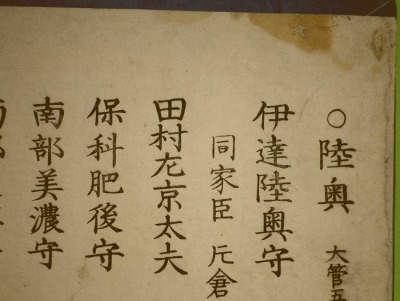 ○陸奥 大管五
伊達陸奥守
同家臣 片倉
田村左京太夫
保科肥後守
南部美濃守